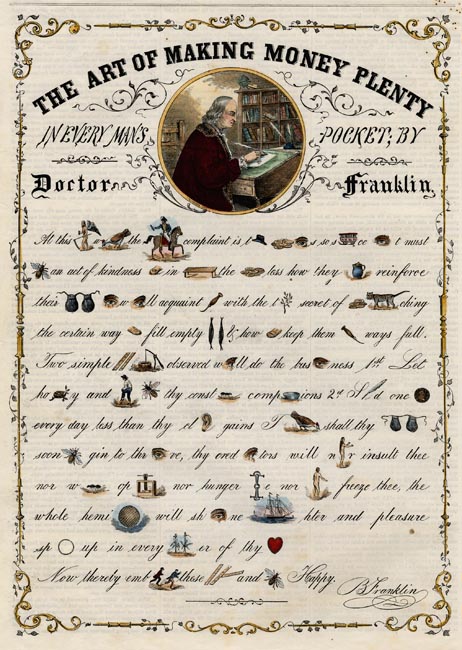 THE ART OF MAKING MONEY PLENTY
IN EVERY MAN'S POCKET; BY
Doctor Franklin,
At this w the complaint is t s so s ce t must
an act of kindness in the less how they reinforce
their w ll acquaint with the t secret of ching
the certain way fill empty & how keep them ways full.
Two simple observed w ll do the bus ness 1st Let
ho y and thy const comp ions 2d S d one
every day less than thy cl gains T shall thy
soon gin to thr ve, thy cred tors will n r insult thee
nor w op nor hunger e nor freeze thee, the
whole hemi will sh ne hter and pleasure
sp up in every er of thy
Now thereby emb these and Happy.
B Franklin